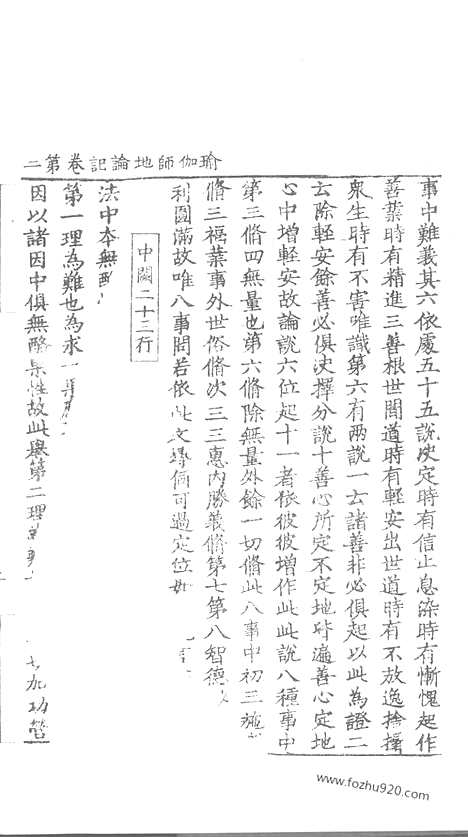 瑜伽師地論記卷第二
事中難義其六依處五十五說決定時有信止息染時有慚愧起作
善業時有精進三善根世間道時有輕安出世道時有不放逸捨攝
衆生時有不害唯識第六有兩說一云諸善非必俱起以此為證二
云除輕安餘善必俱決擇分說十善心所定不定地皆遍善心定地
心中增輕安故論說六位起十一者依彼彼增作此此說八種事中
第三脩四無量也第六脩除無量外餘一切脩此八事中初三施
脩三福業事外世俗脩次三三惠內勝義脩第七第八智德
利圓滿故唯八事問若依此文辱俩可過定位
中闕二十三行
法中本無
第一理為難也為求
因以諸因中俱無酪果性故此舉第二理
加功營
www.fozhu920.com